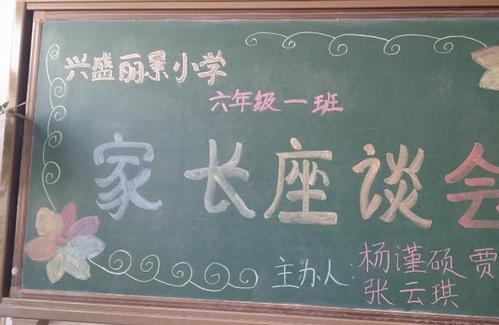 兴盛丽景小学
六年级一班
家长座谈会
主办人:杨谨硕 贾
张云琪